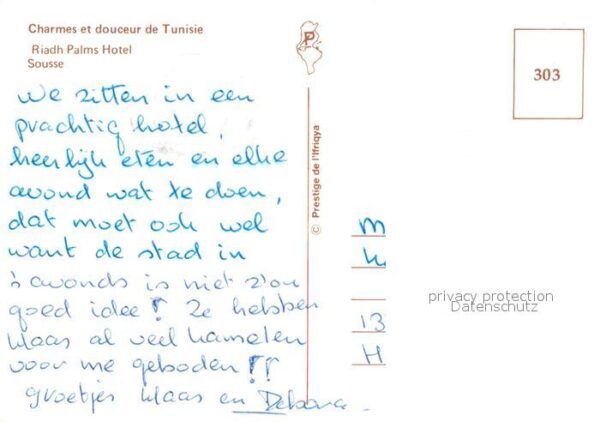 Charmes et douceur de Tunisie
Riadh Palms Hotel
Sousse
303
We zitten in een
prachtig hotel,
heerlijk eten en elke
avond wat te doen,
dat moet ook wel
want de stad in
's avonds is niet z'on
goed idee! Ze hebben
Klaas al veel kamelen
voor me geboden!!
Groetjes Klaas en Debora.
© Prestige de l'Ifriqya
P
M
13
H
privacy protection
Datenschutz